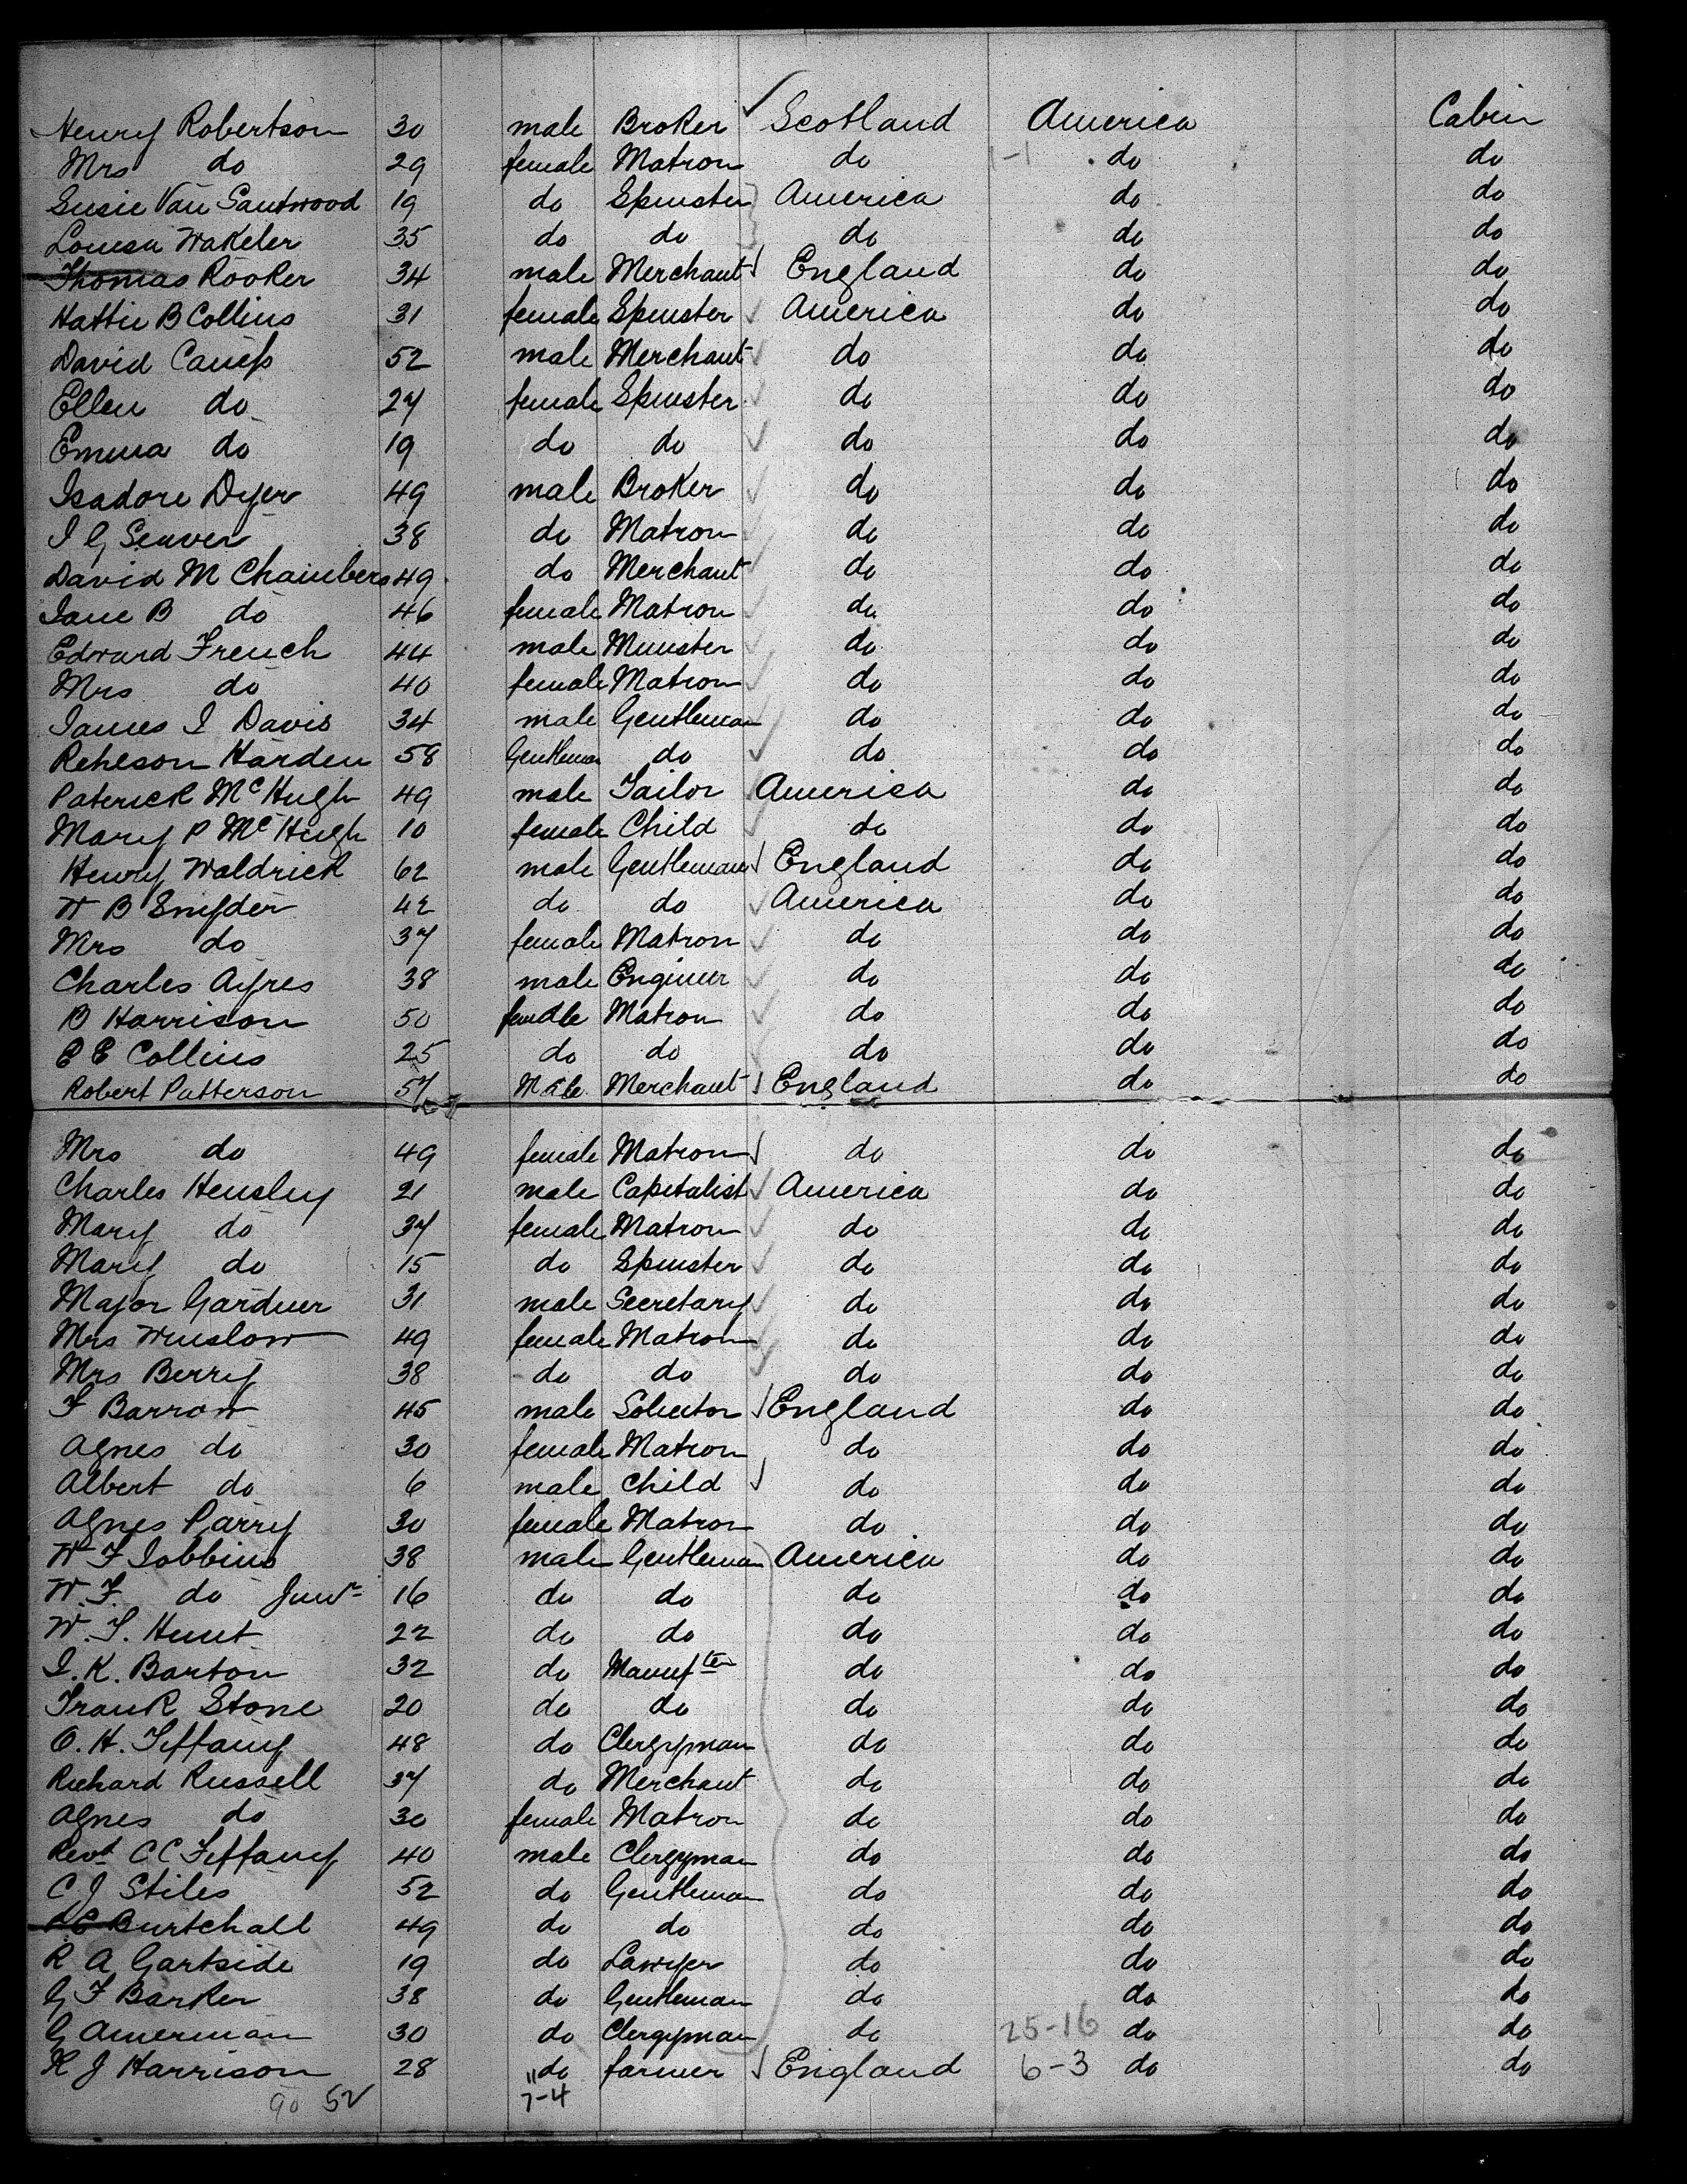 Henry Robertson 30 male Broker Scotland America Cabin
Mrs do 29 female Matron do 1-1 do do
Susie Van Santwood 19 do Spinster America do do
Louisa Wakeler 35 do do do do do
Thomas Rooker 34 male Merchant England do do
Hattie B Collins 31 female Spinster America do do
David Camp 52 male Merchant do do do
Ellen do 27 female Spinster do do do
Emma do 19 do do do do do
Isadore Dyer 49 male Broker do do do
I G Seaver 38 do Matron do do do
David M Chambers 49 do Merchant do do do
Jane B do 46 female Matron do do do
Edward French 44 male Minister do do do
Mrs do 40 female Matron do do do
James I Davis 34 male Gentleman do do do
Reheson Harden 58 Gentleman do do do do
Paterick McHugh 49 male Tailor America do do
Mary P McHugh 10 female Child do do do
Henry Waldrick 62 male Gentleman England do do
W B Snyder 42 do do America do do
Mrs do 37 female Matron do do do
Charles Ayres 38 male Engineer do do do
B Harrison 50 female Matron do do do
E E Collins 25 do do do do do
Robert Patterson 57 Male Merchant England do do
Mrs do 49 female Matron do do do
Charles Hensley 21 male Capitalist America do do
Mary do 37 female Matron do do do
Mary do 15 do Spinster do do do
Major Gardner 31 male Secretary do do do
Mrs Winslow 49 female Matron do do do
Mrs Berry 38 do do do do do
F Barrow 45 male Solicitor England do do
Agnes do 30 female Matron do do do
Albert do 6 male Child do do do
Agnes Parry 30 female Matron do do do
W F Jobbins 38 male Gentleman America do do
W. F. do Junr 16 do do do do do
W. S. Hunt 22 do do do do do
I. K. Barton 32 do Manufter do do do
Frank Stone 20 do do do do do
O. H. Tiffany 48 do Clergyman do do do
Richard Russell 37 do Merchant do do do
Agnes do 30 female Matron do do do
Revd C C Tiffany 40 male Clergyman do do do
C J Stiles 52 do Gentleman do do do
Burtchall 49 do do do do do
R A Gartside 19 do Lawyer do do do
G F Barker 38 do Gentleman do do do
G Amerman 30 do Clergyman do 25-16 do do
H J Harrison 28 do farmer England 6-3 do do
90 52 7-4